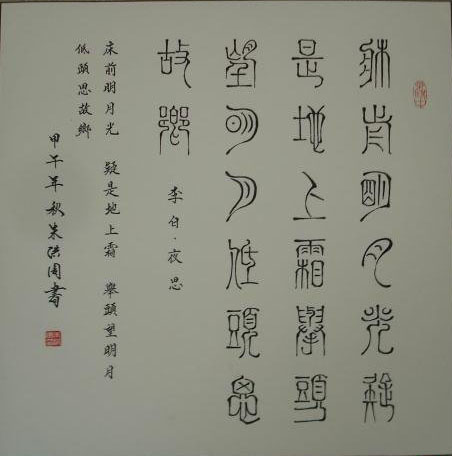 牀前明月光疑
是地上霜舉頭
望明月低頭思
故鄉
李白·夜思
床前明月光 疑是地上霜 舉頭望明月
低頭思故鄉
甲午年秋朱洪周書